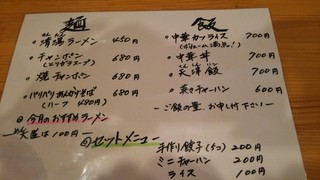 麺
。清湯ラーメン 450円
。チャンポン 680円
(とりガラスープ)
。焼チャンポン 680円
。パリパリあんかけそば 680円
(ハーフ 480円)
◎今月のおすすめラーメン
大盛は100円
飯
。中華カツライス 700円
(ボリューム満点!)
。中華丼 700円
。天津飯 700円
。菜々チャーハン 600円
ご飯の量、お申し付下さい
◎セットメニュー
手作り餃子(5つ) 200円
ミニチャーハン 200円
ライス 100円